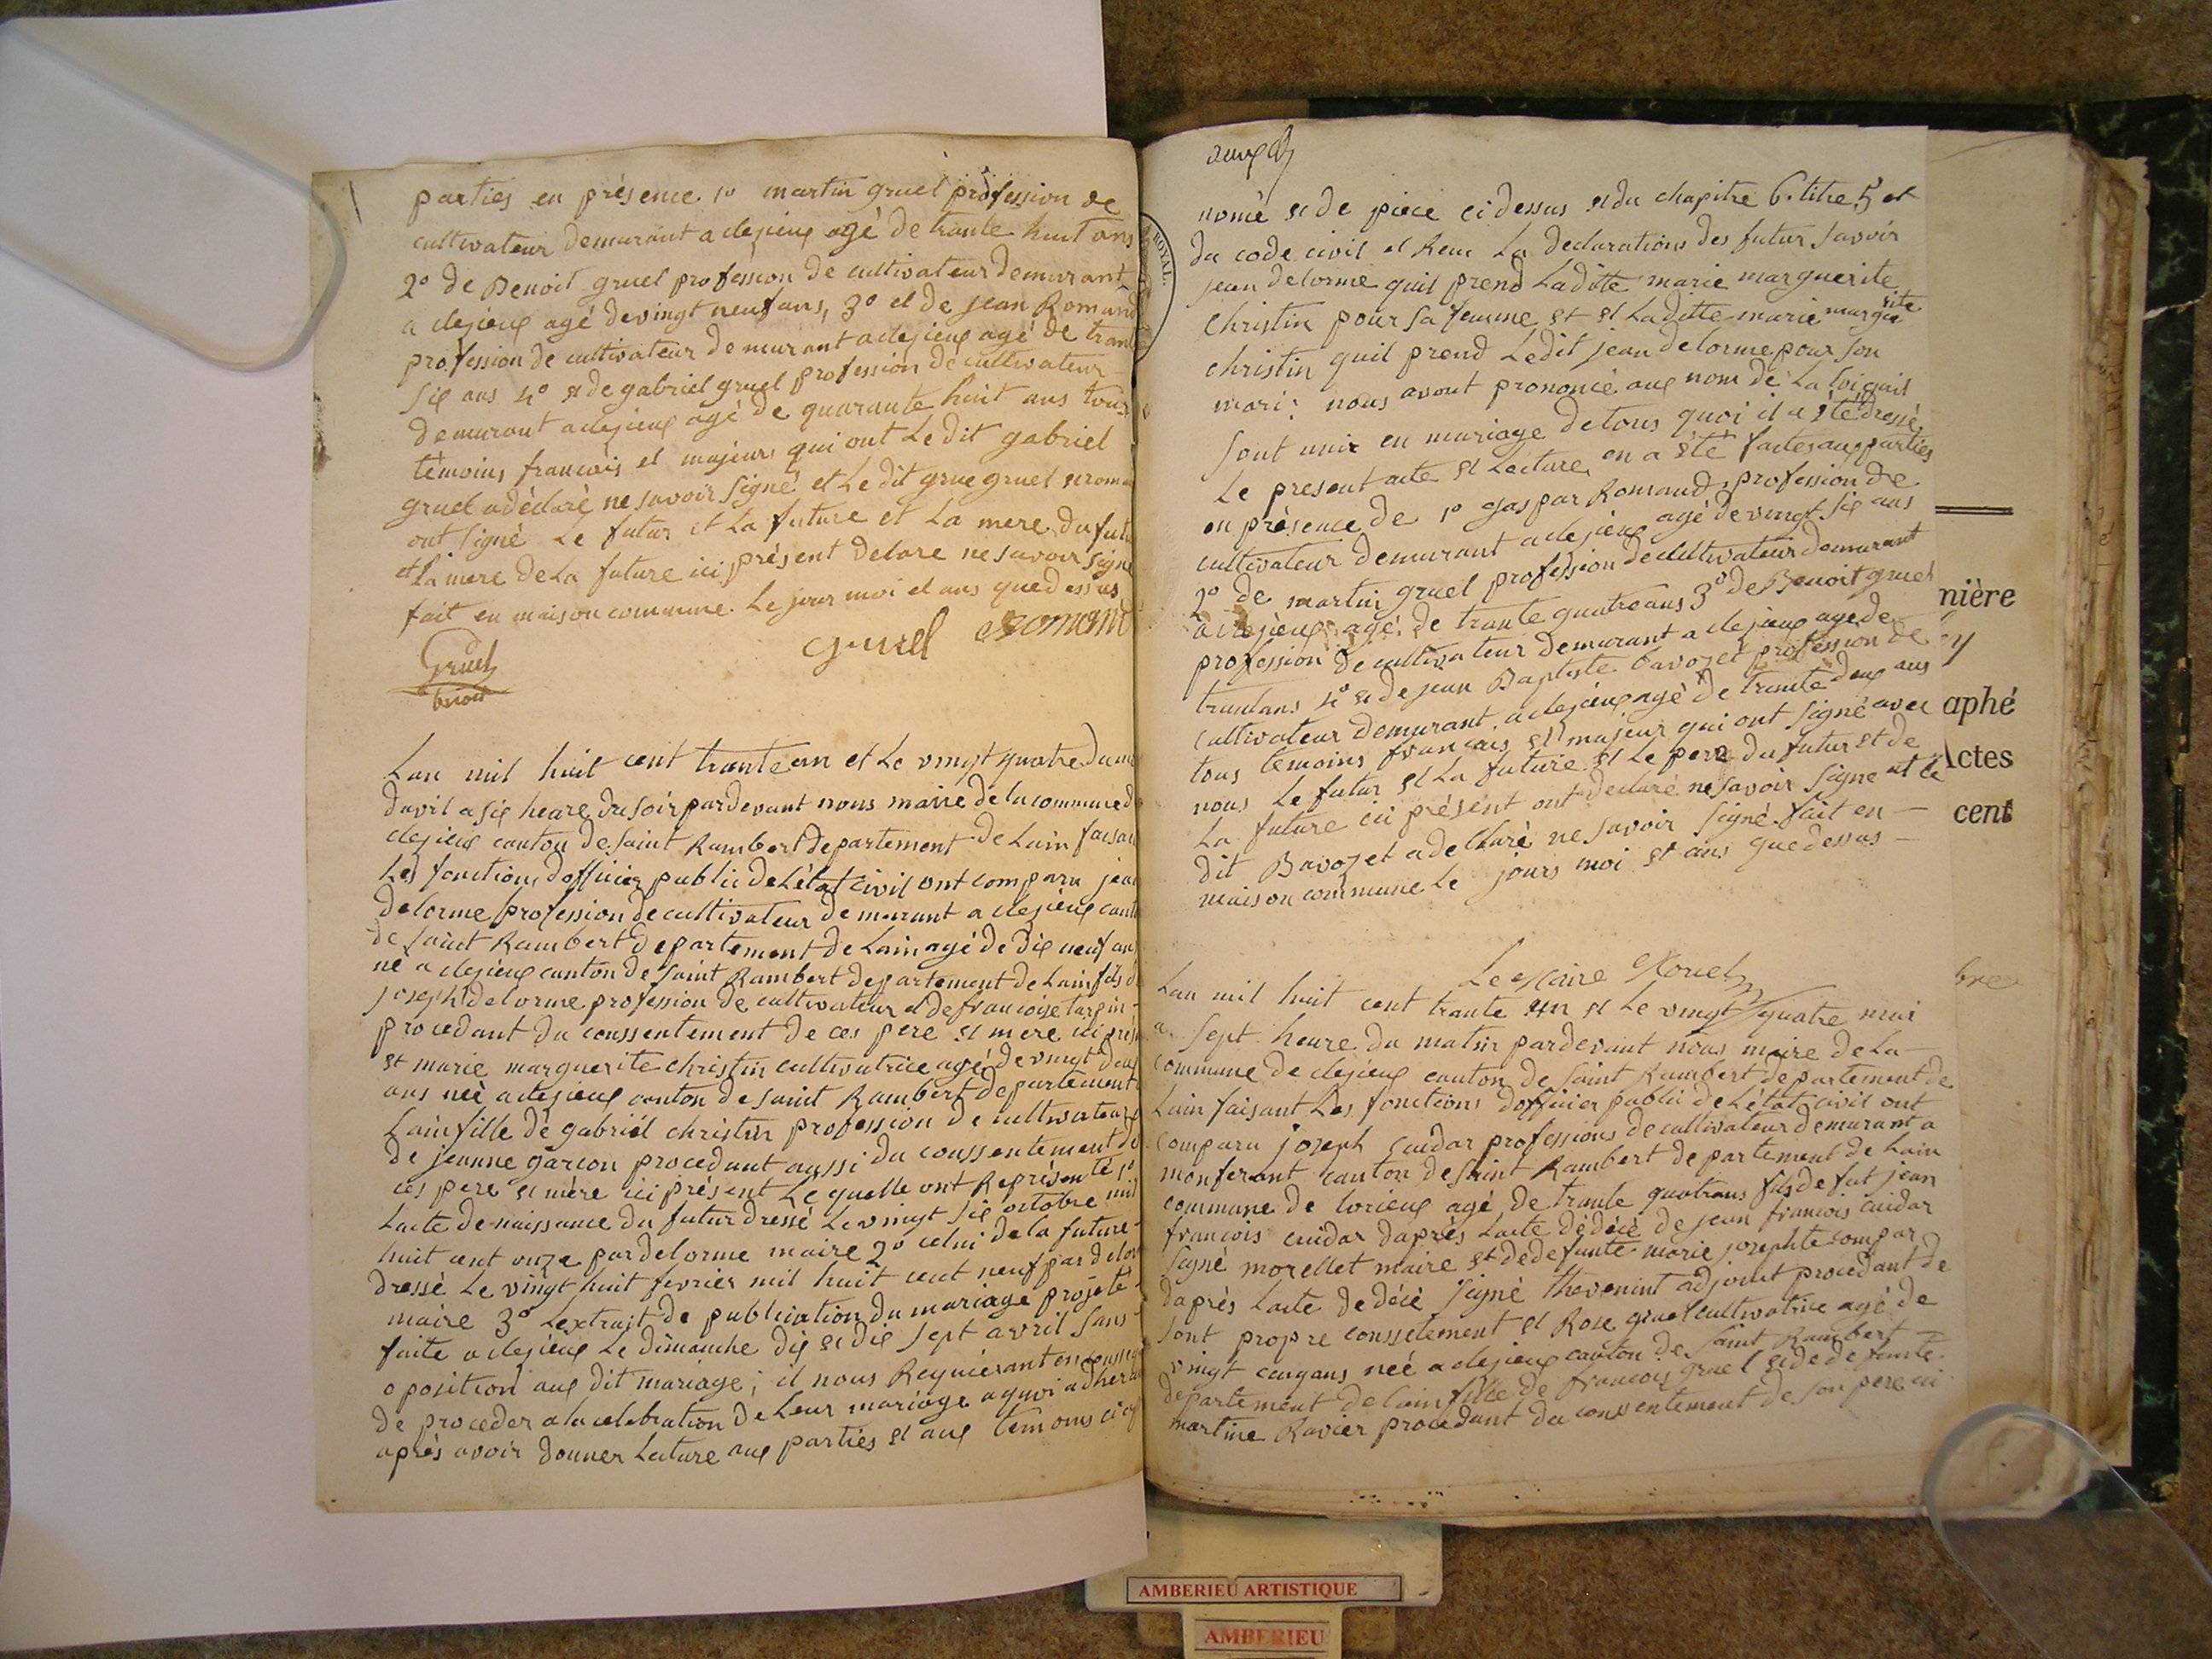 parties en présence 1º martin gruel profession de
cultivateur demurant a clejieux agé de trante huit ans
2º de Benoit gruel profession de cultivateur demurant
a clejieux agé de vingt neuf ans, 3º et de jean Romand
profession de cultivateur demurant a clejieux agé de tran
six ans 4º et de gabriel gruel profession de cultivateur
demurant a clejieux agé de quarante huit ans tous
témoins francois et majeurs qui ont Le dit gabriel
gruel a déclaré ne savoir signé et Le dit grue gruel et rom
ont signé Le futur et La future et La mere du fut
et La mere de La future ici présent delare ne savoir signe
fait en maison commune. Le jour moi et ans que dessus
gruel Romand
Gruel
benoit
Lan mil huit cent trante un et Le vingt quatre du m
davril a six heure du soir pardevant nous maire de la commune d
clejieux canton de Saint Rambert departement de Lain faisan
Les fonctions dofficier public de L'état civil ont comparu jean
delorme profession de cultivateur demurant a clejieux cant
de Saint Rambert departement de Lain agé de dix neuf ans
né a clejieux canton de Saint Rambert departement de Lain fils d
joseph delorme profession de cultivateur et de francoise tarpin
procedant du conssentement de ces pere et mere ici prés
et marie marguerite christin cultivatrice agé de vingt deux
ans neé a clejieux canton de Saint Rambert departement
Lain fille de gabriél christin profession de cultivateur
de jeanne garcon procedant aussi du conssentement de
ces pere et mère ici présent Le quelle ont Représenté 1º
Lacte de naissance du futur dressé Le vingt six octobre mil
huit cent onze par delorme maire 2º celui de la future
dressé Le vingt huit fevrier mil huit cent neuf par delor
maire 3º Lextrait de publication du mariage projeté
faite a clejieux Le dimanche dix et dix sept avril sans
oposition aux dit mariage; il nous Requierant en conssq
de proceder a la celebration de Leur mariage a quoi adhera
après avoir donner Lecture aux parties et aux temoins ci ap
deux
nomé et de piece ci dessus et du chapitre 6. titre 5 et
du code civil et Recu La declarations des futur savoir
jean delorme quil prend Laditte marie marguerite
christin pour sa femme et et Laditte marie marguerite
christin quil prend Ledit jean delorme pour son
mari: nous avont prononcé aux nom de La loi quil
sont unir en mariage de tous quoi il a été dressé
Le present acte et Lecture en a été faites aux parties
en présence de 1º gaspar Romand profession de
cultivateur demurant a clejieux agé de vingt six ans
2º de martin gruel profession de cultivateur demurant
a clejieux agé de trante quatre ans 3º de Benoit gruel
profession de cultivateur demurant a clejieux age de
trantans 4º et de jean Baptiste bavozet profession de
cultivateur demurant a clejieux agé de trante deux ans
tous temoins francais et majeur qui ont signé avec
nous Le futur et La future et Le pere du futur et de
La future ici présent ont declaré ne savoir signe et Le
dit Bavozet a declaré ne savoir signé fait en
maison commune Le jours moi et ans que dessus
Le Maire
Lan mil huit cent trante un et Le vingt quatre mai
a sept heure du matin pardevant nous maire de La
commune de clejieux canton de Saint Rambert departement de
Lain faisant Les fonctions dofficier public de L'état civil ont
comparu joseph cuidar professions de cultivateur demurant a
monferant canton de Saint Rambert departement de Lain
commune de Lorieux agé de trante quatrans fils de fut jean
francois cuidar daprès Lacte dédécé de jean francois cuidar
signé morellet maire et de defunte marie josephte compar
daprès Lacte de décé signé thevenint adjoint procedant de
sont propre conssetement et Rose gruel cultivatrice agé de
vingt cenqans neé a clejieux canton de Saint Rambert
departement de Lain fille de francois gruel et de defunte
martine Ravier procedant du conssentement de son pere ici
ROYAL
nière
y
aphé
Actes
cent
bre
AMBERIEU ARTISTIQUE
AMBERIEU